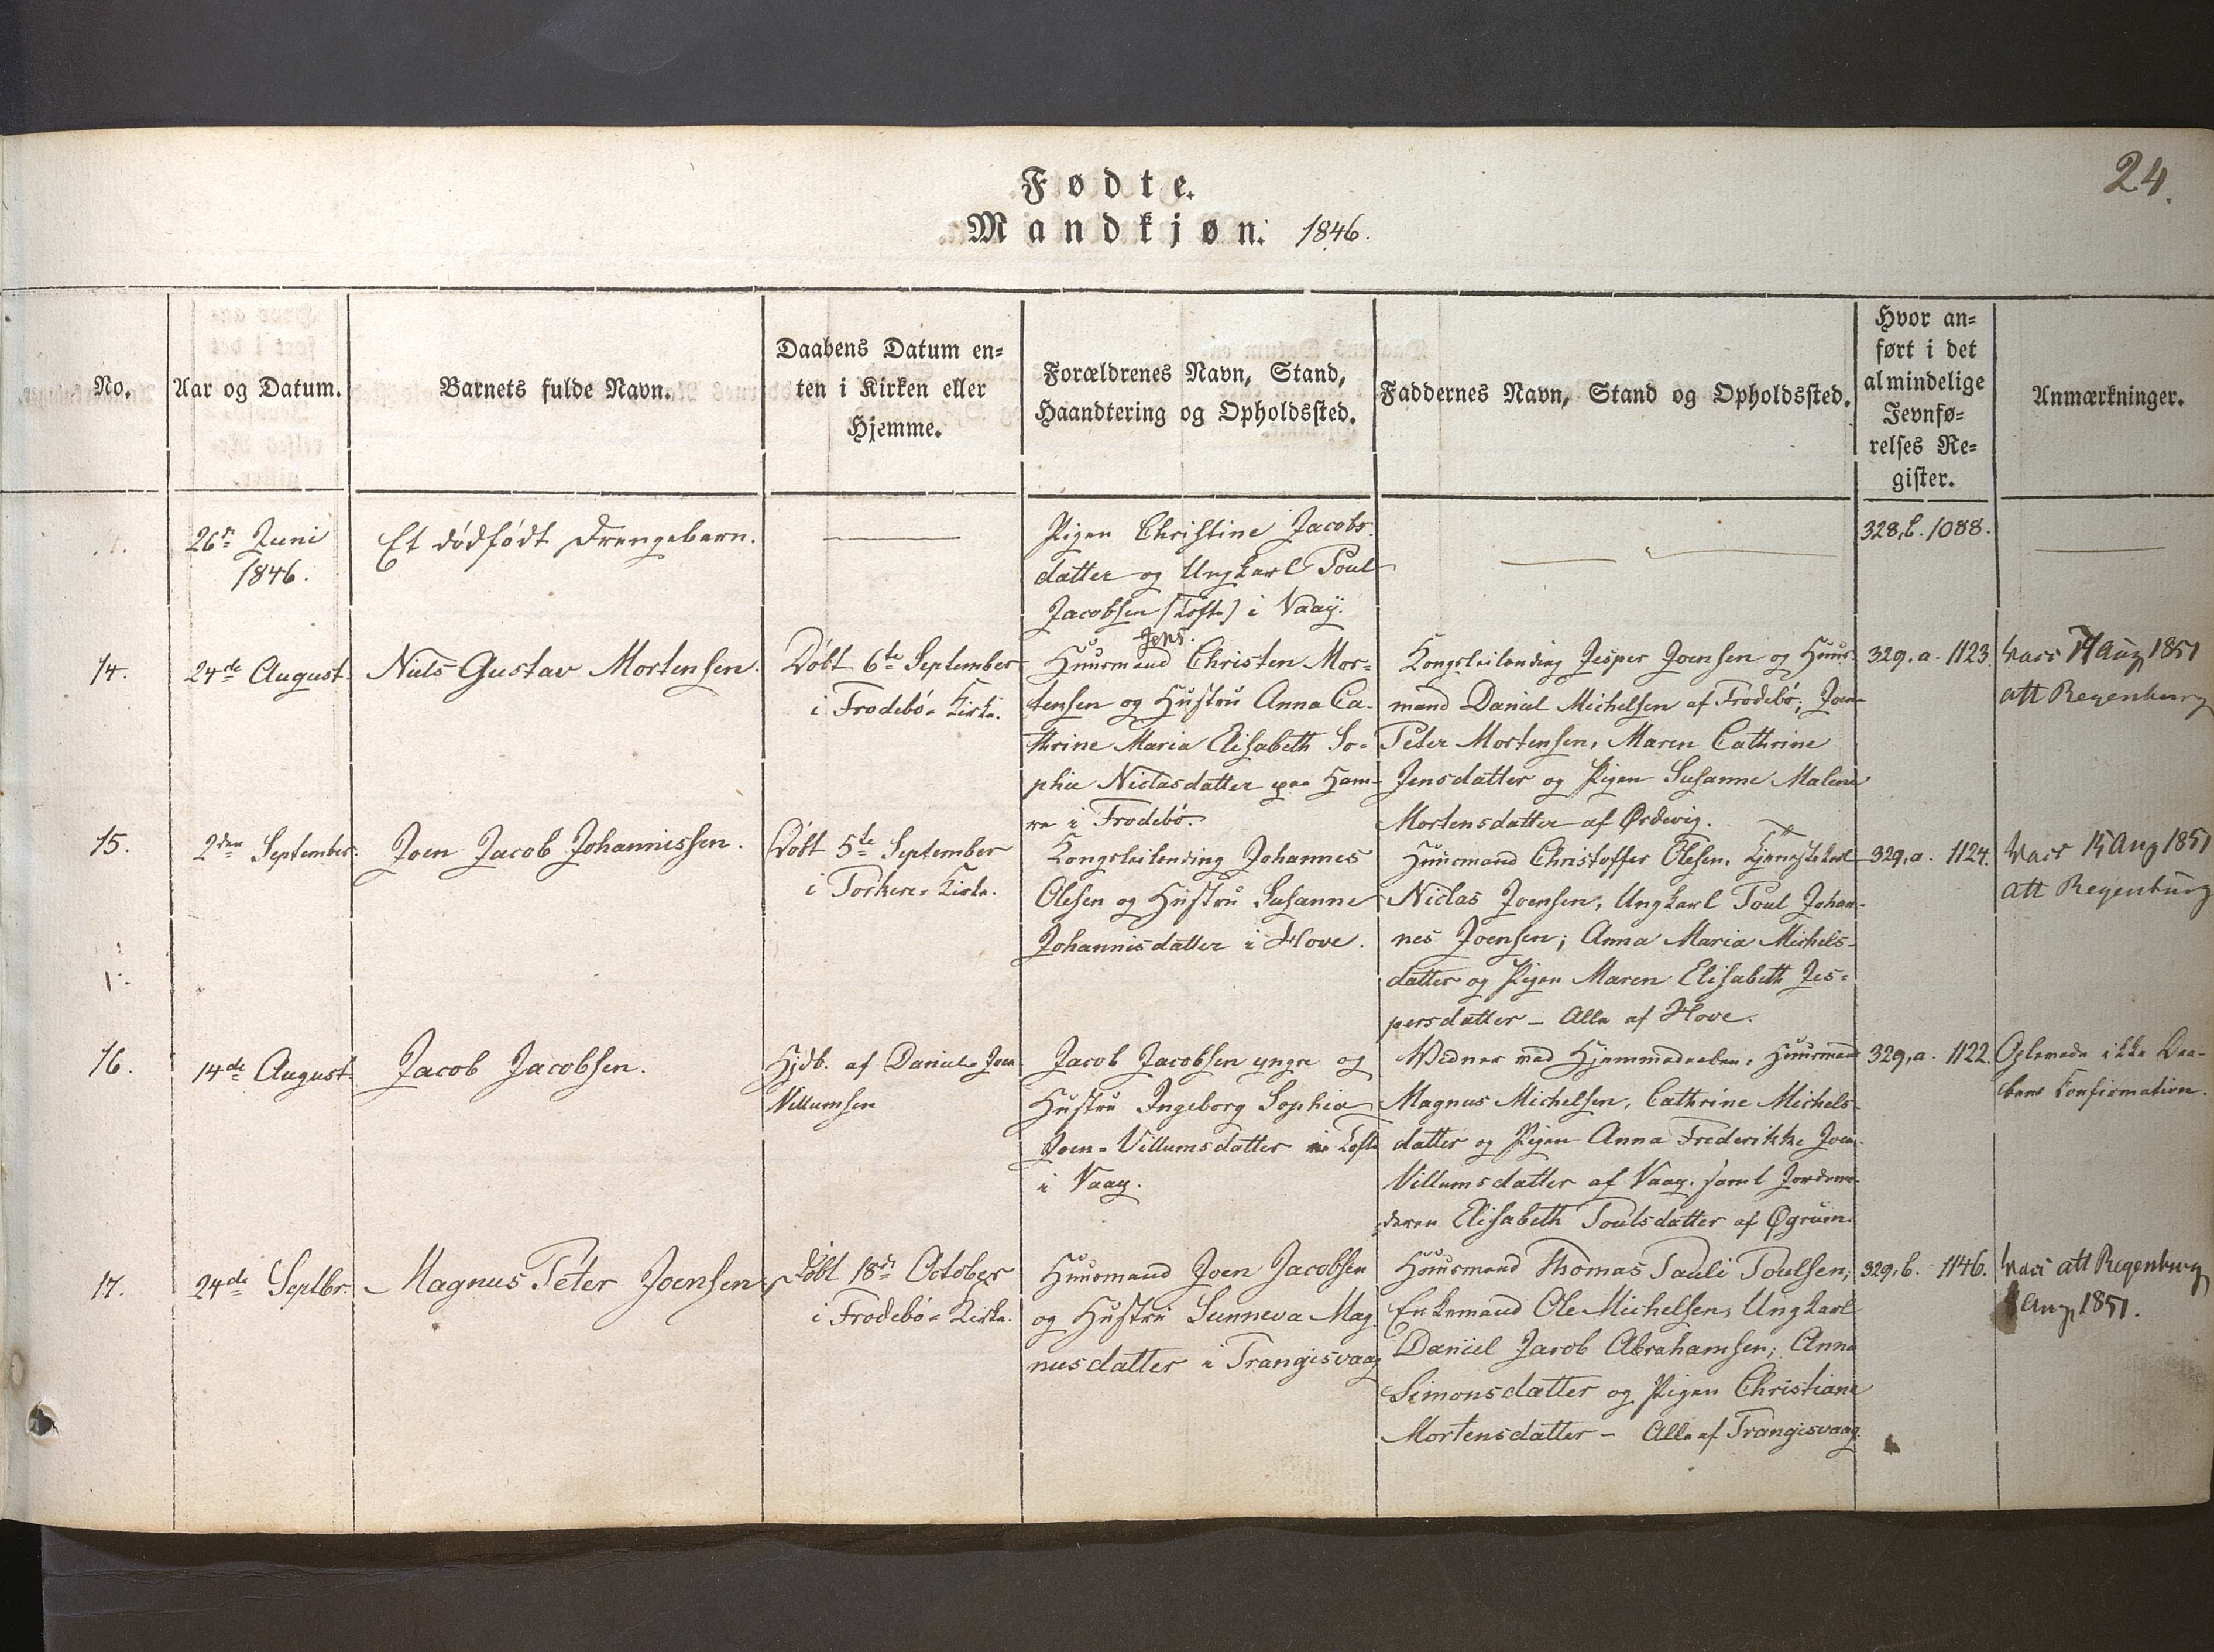 24.
Fødte.
Mandkjøn. 1846.
No.
Aar og Datum.
Barnets fulde Navn.
Daabens Datum en=
ten i Kirken eller
Hjemme.
Forældrenes Navn, Stand,
Haandtering og Opholdssted.
Faddernes Navn, Stand og Opholdssted.
Hvor an=
ført i det
almindelige
Jevnfø=
relses Re=
gister.
Anmærkninger.
26de Juni
1846.
Et dødfødt Drengebarn.
Pigen Christine Jacobs-
datter og Ungkarl Poul
Jacobsen (Tofte) i Vaag.
328,b. 1088.
14.
24de August.
Niels Gustav Mortensen.
Døbt 6te September
i Frodebø-Kirke.
Jens.
Huusmand Christen Mor=
tensen og Hustru Anna Ca-
thrine Maria Elisabeth So=
phie Niclasdatter paa Ham-
re i Frodebø.
Kongsleilending Jesper Joensen og Huus-
mand Daniel Michelsen af Frodebø; Joen-
Peter Mortensen, Maren Cathrine
Jensdatter og Pigen Susanne Malene
Mortensdatter af Ørdevig.
329.a. 1123.
Vacc 14 Aug 1851
att Regenburg
15.
2den September.
Joen Jacob Johannissen.
Døbt 5te September
i Porkere-Kirke.
Kongsleilending Johannes
Olesen og Hustru Susanne
Johannisdatter i Hove.
Huusmand Christoffer Olesen, Tjenestekarl
Niclas Joensen, Ungkarl Poul Johan-
nes Joensen; Anna Maria Michels-
datter og Pigen Maren Elisabeth Jes=
persdatter - Alle af Hove.
329,a. 1124.
Vacc 15 Aug 1851
att Regenburg
16.
14de August
Jacob Jacobsen.
Hjdb. af Daniel Joen
Villumsen
Jacob Jacobsen yngre og
Hustru Ingeborg Sophie
Joen-Villumsdatter Tofte
i Vaag.
Vidner ved Hjemmedaaben: Huusmand
Magnus Michelsen, Cathrine Michels-
datter og Pigen Anna Frederikke Joen-
Villumsdatter af Vaag, samt Jordemo-
deren Elisabeth Poulsdatter af Øgrum.
329,a. 1122.
Oplevede ikke Daa-
bens Confirmation.
17.
24de Septbr.
Magnus Peter Joensen
Døbt 18de October
i Frodebø-Kirke.
Huusmand Joen Jacobsen
og Hustru Sunneva Mag-
nusdatter i Trangisvaag
Huusmand Thomas Pauli Poulsen,
Enkemand Ole Michelsen, Ungkarl
Daniel Jacob Abrahamsen; Anna
Simonsdatter og Pigen Christiane
Mortensdatter - Alle af Trangisvaag.
329,b. 1146.
Vacc att Regenburg
Aug 1851.